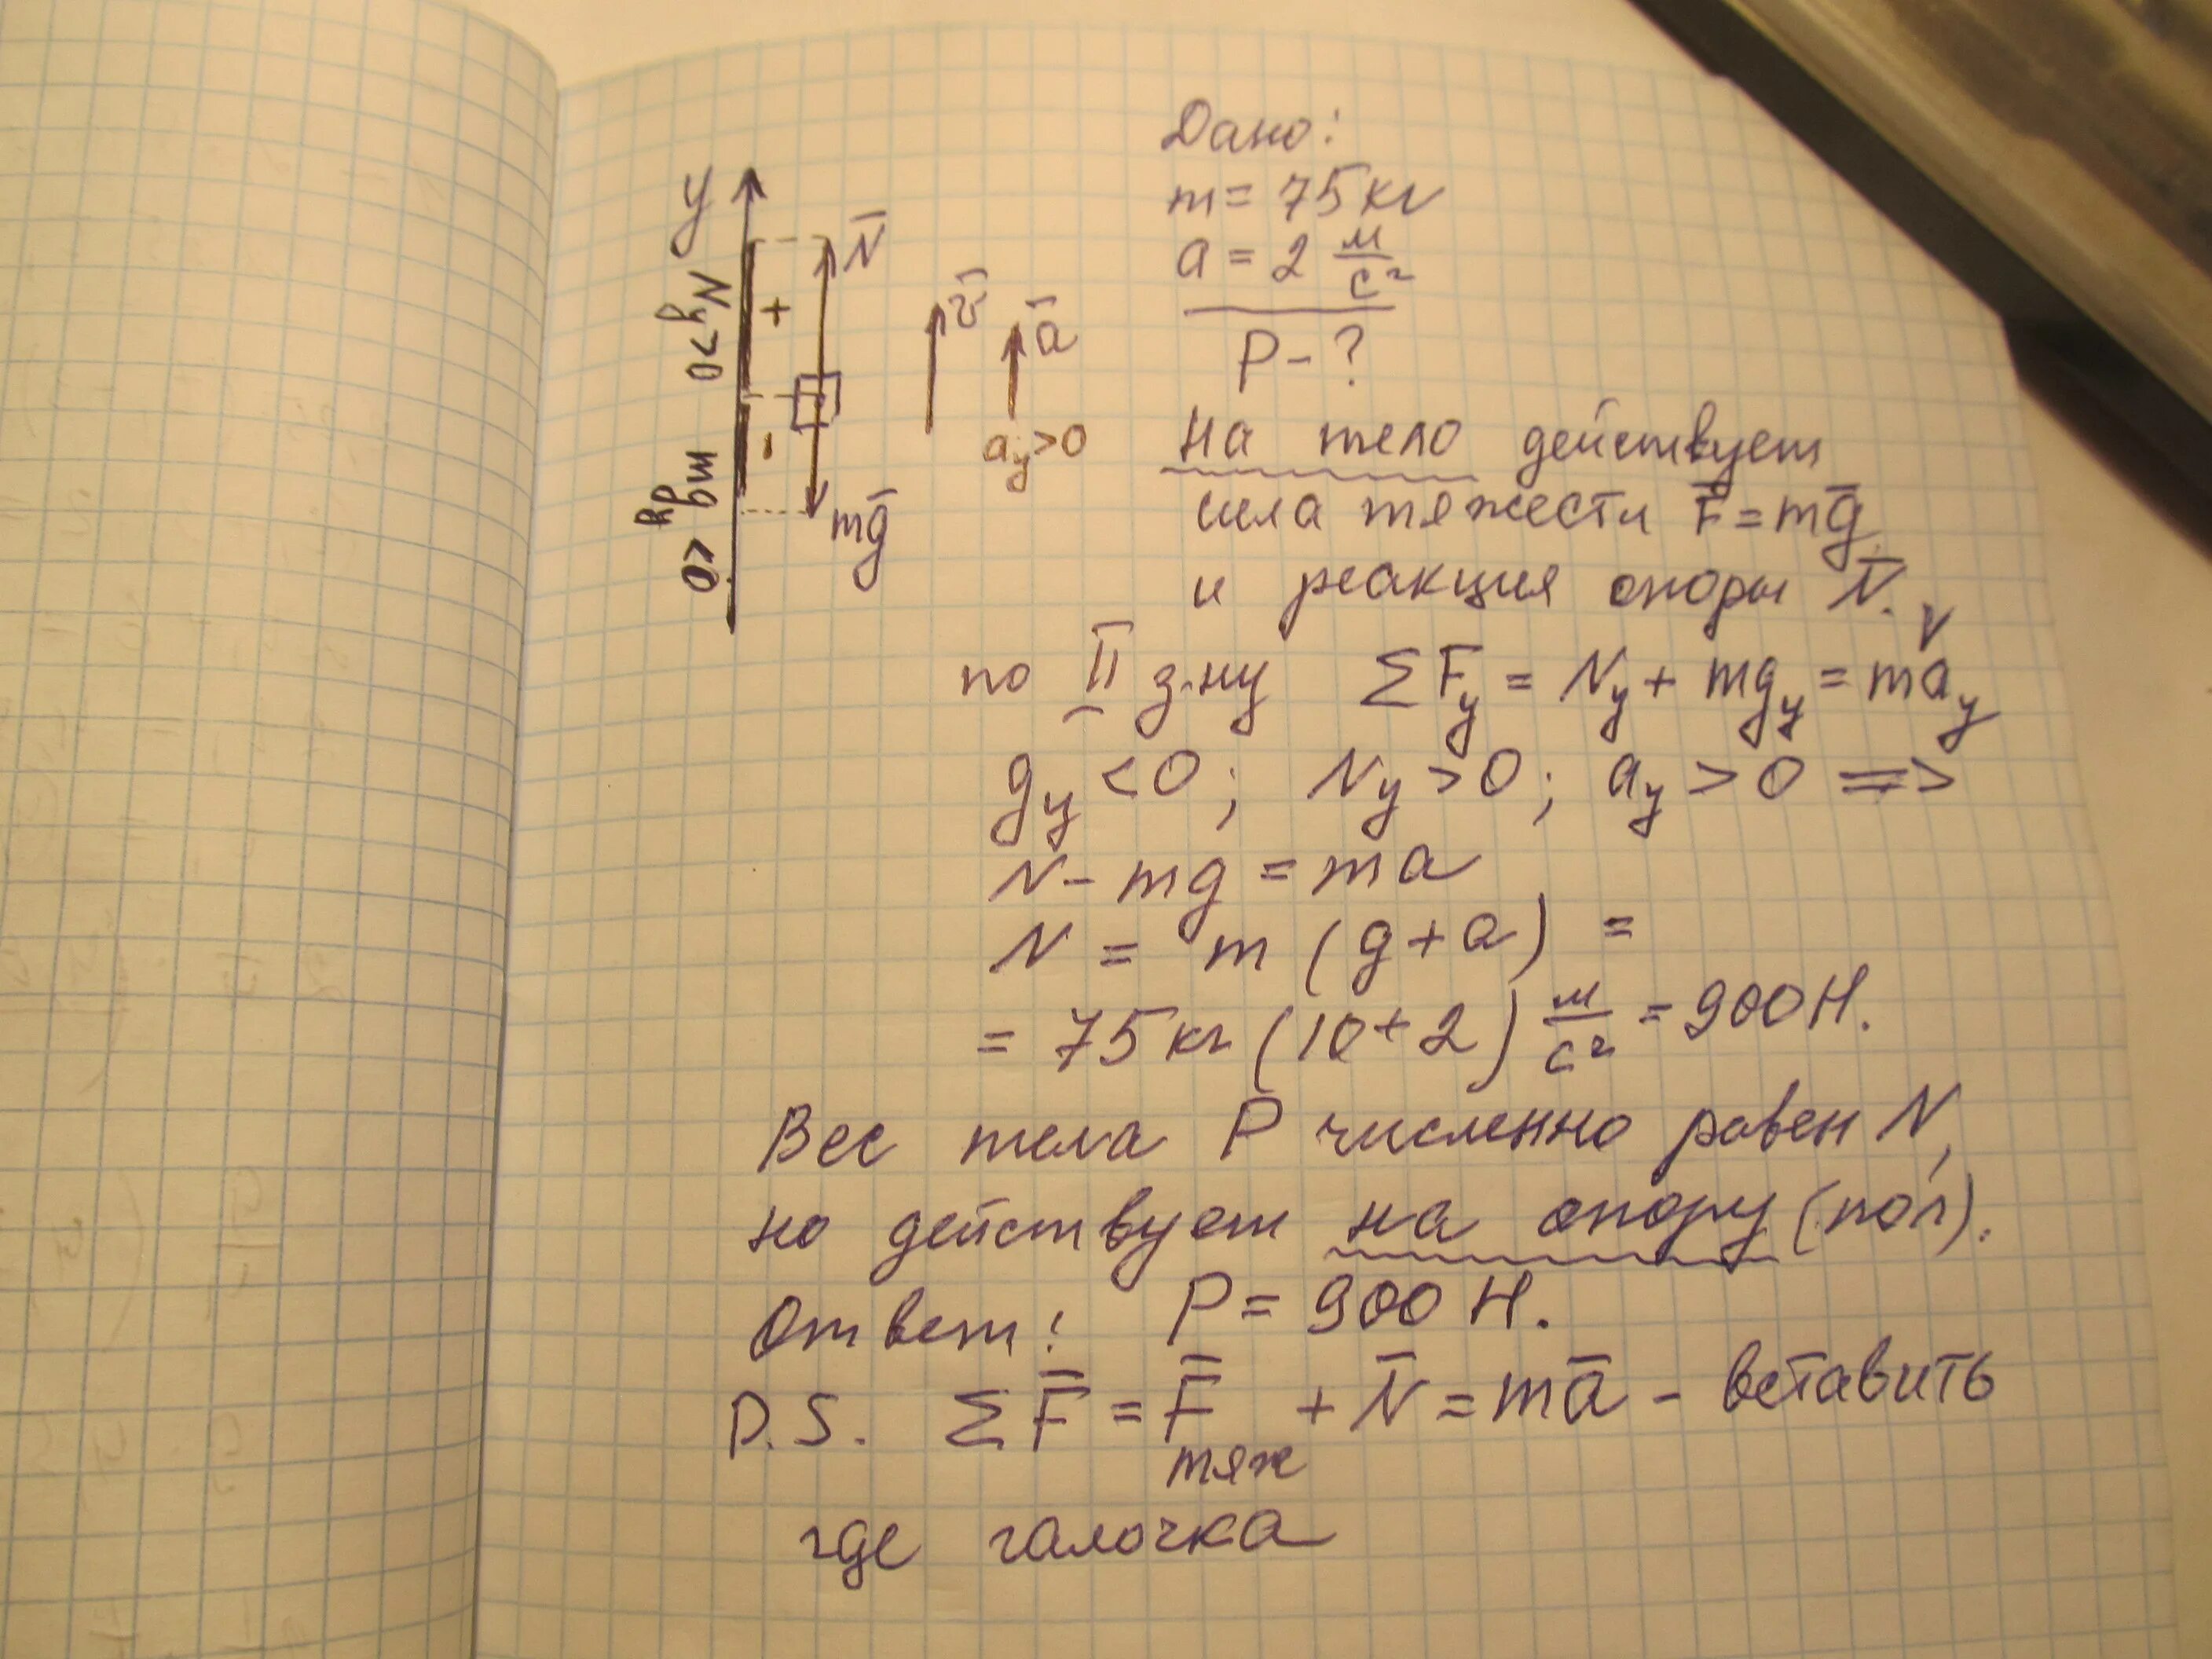 y
N̄
Ny>0
+
v̄
ā
ay>0
-
mgy<0
mḡ
Дано:
m = 75 кг
a = 2 м/с²
P - ?
На тело действует
сила тяжести F̄ = mḡ
и реакция опоры N̄. V
по II з-ну ΣFy = Ny + mgy = may
gy < 0; Ny > 0; ay > 0 =>
N - mg = ma
N = m (g + a) =
= 75 кг (10 + 2) м/с² = 900 Н.
Вес тела P̄ численно равен N,
но действует на опору (пол).
Ответ: P = 900 Н.
P.S. ΣF̄ = F̄тяж + N̄ = mā - вставить
где галочка